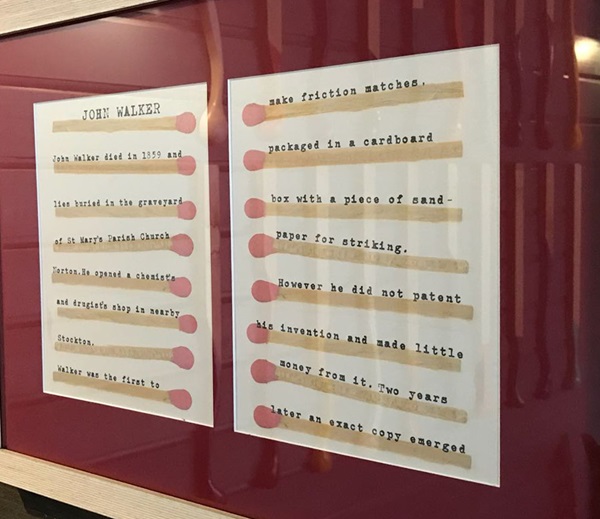 JOHN WALKER
John Walker died in 1859 and
lies buried in the graveyard
of St Mary's Parish Church
Norton.He opened a chemist's
and drugist's shop in nearby
Stockton.
Walker was the first to
make friction matches,
packaged in a cardboard
box with a piece of sand-
paper for striking.
However he did not patent
his invention and made little
money from it. Two years
later an exact copy emerged